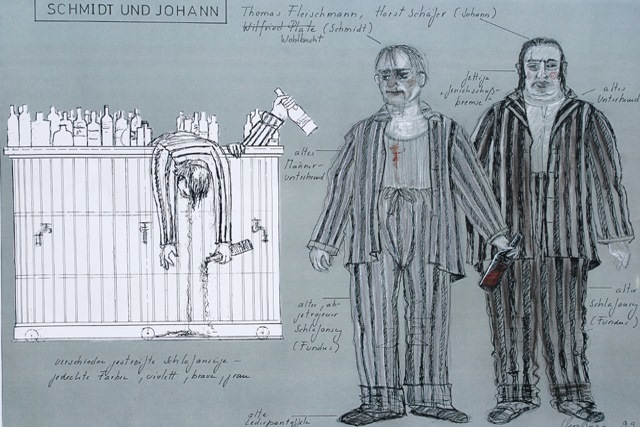 SCHMIDT UND JOHANN
Thomas Fleischmann, Horst Schäfer (Johann)
Wilfried Plate (Schmidt)
Wohlbracht
fettige
altes
Unterhemd
altes
Männer-
unterhemd
alter, ab-
getragener
Schlafanzug
(Fundus)
alter
Schlafanzug
(Fundus)
verschieden gestreifte Schlafanzüge –
gedeckte Farben, violett, braun, grau
alte
Lederpantoffeln
99